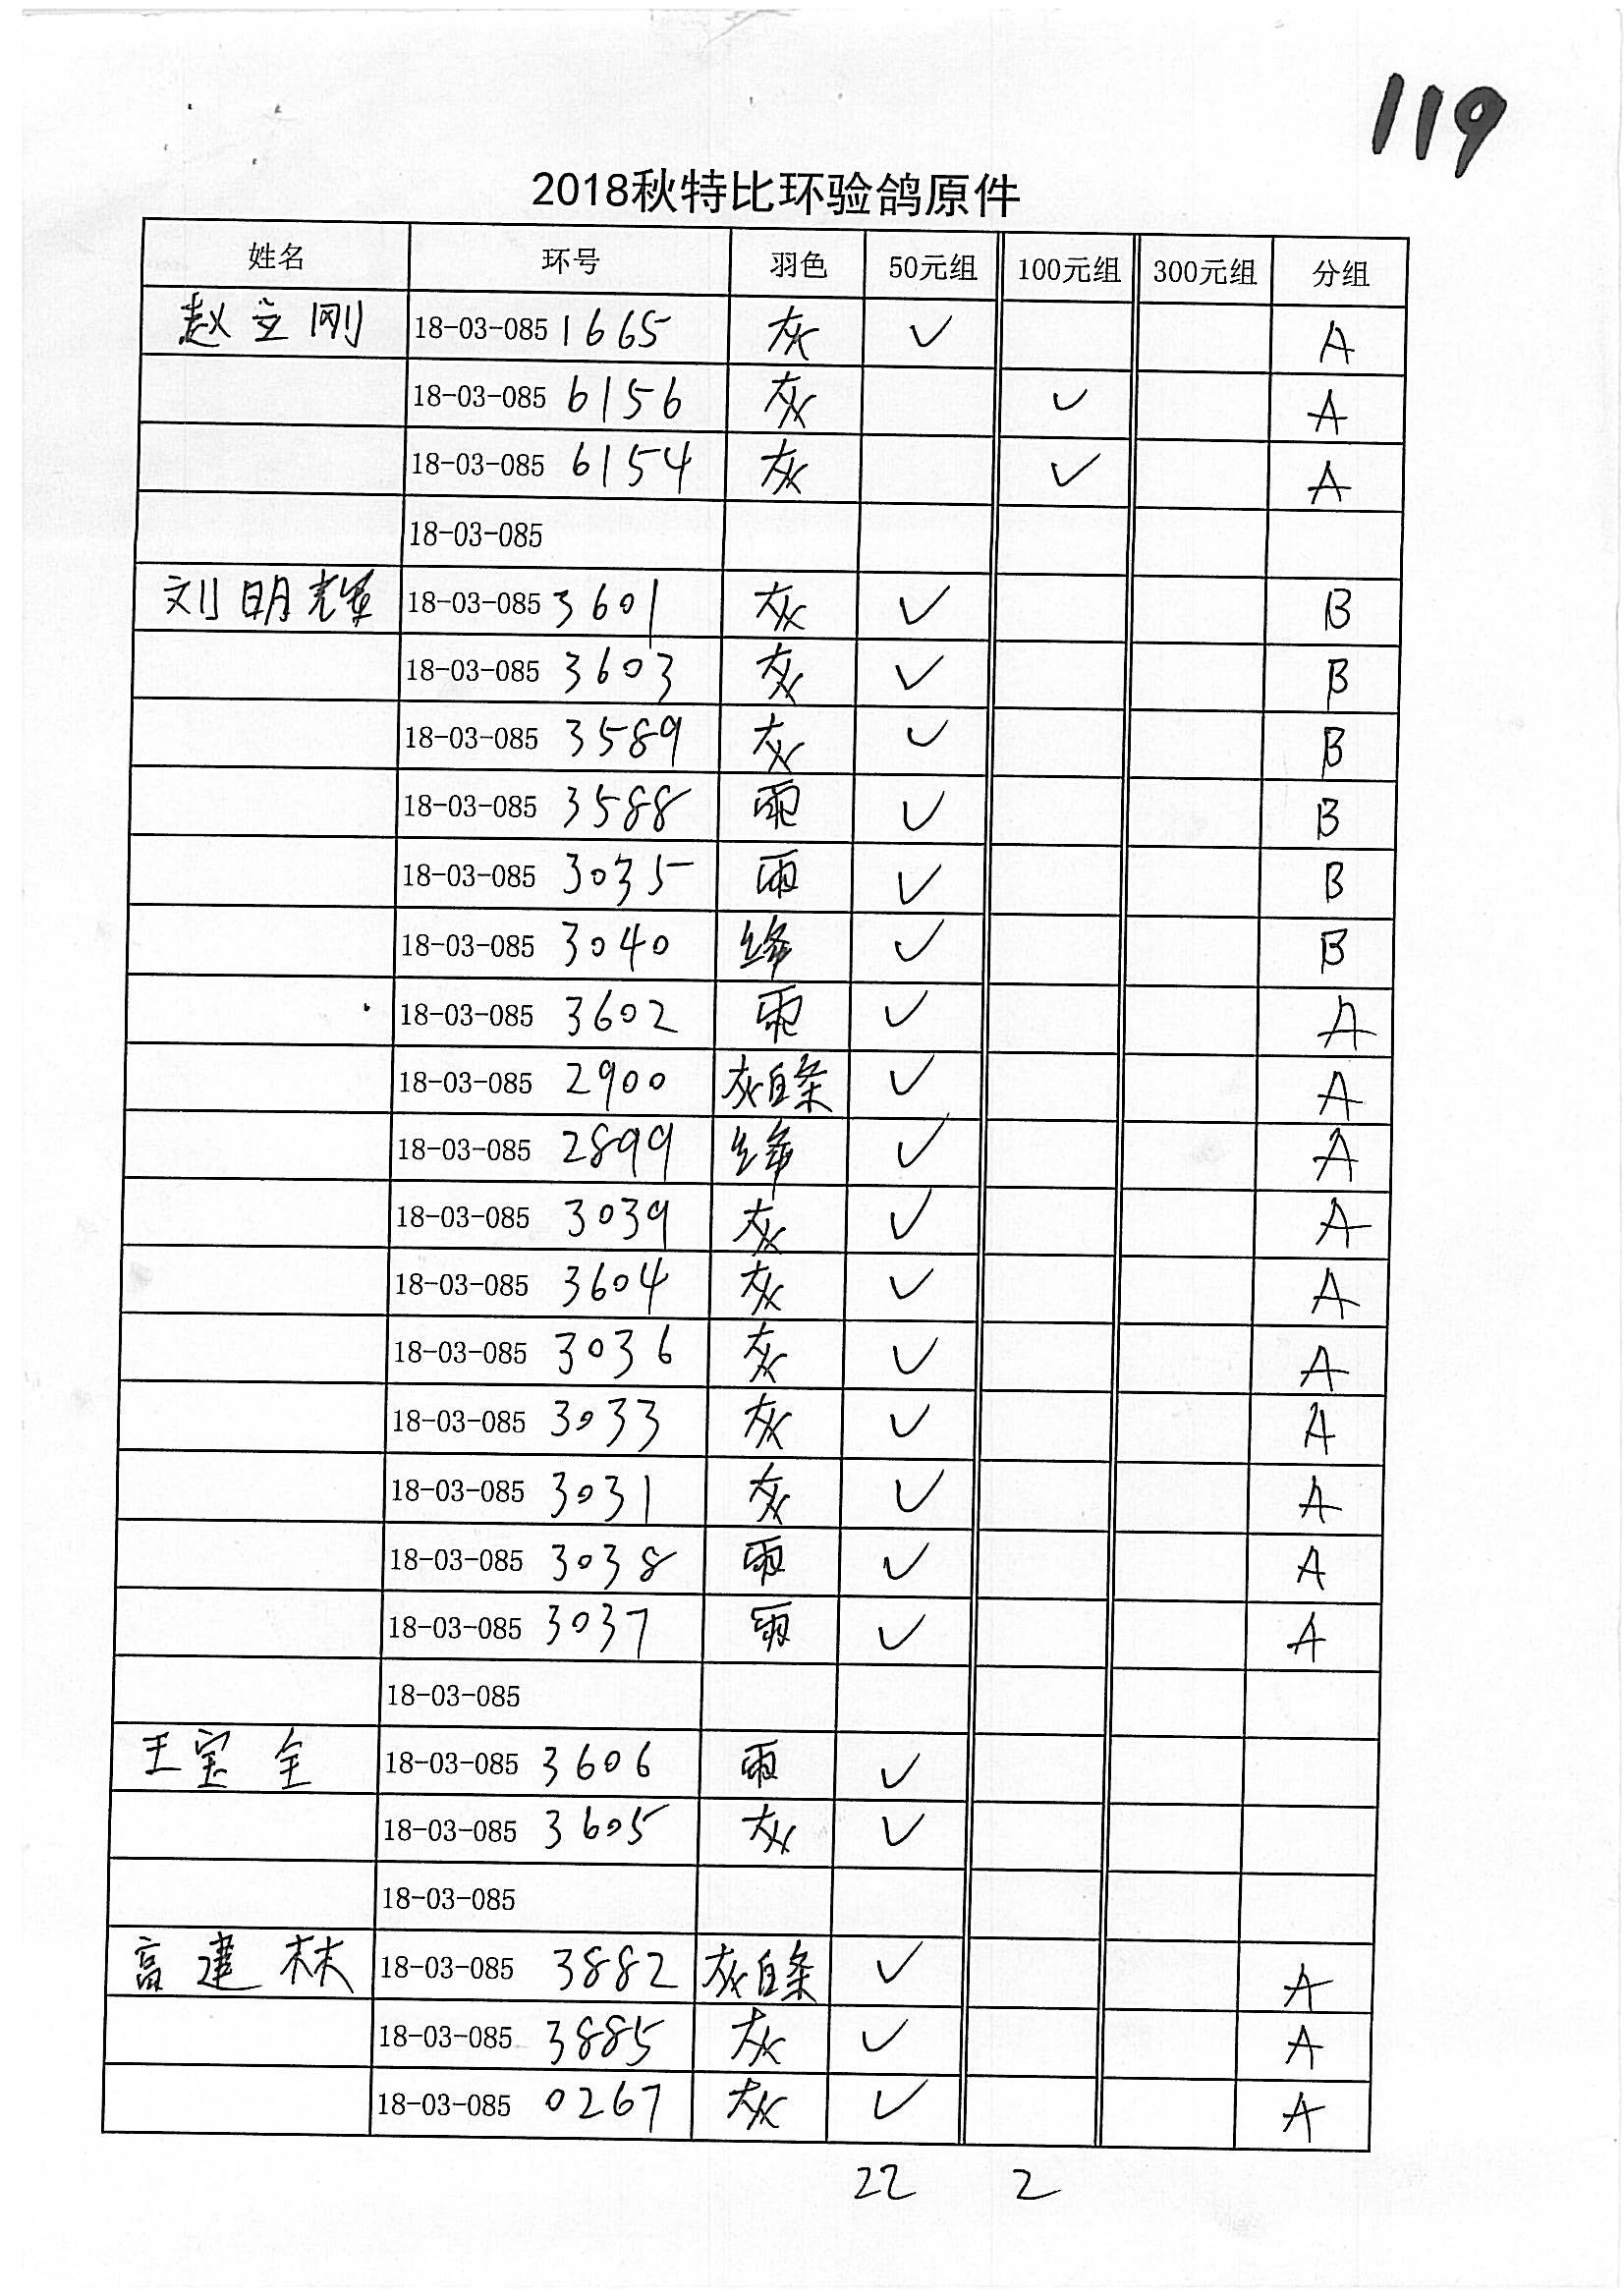 119
2018秋特比环验鸽原件
姓名 环号 羽色 50元组 100元组 300元组 分组
赵立刚 18-03-085 1665 灰 ✓ A
18-03-085 6156 灰 ✓ A
18-03-085 6154 灰 ✓ A
18-03-085
刘明耀 18-03-085 3601 灰 ✓ B
18-03-085 3603 灰 ✓ B
18-03-085 3589 灰 ✓ B
18-03-085 3588 雨 ✓ B
18-03-085 3035 雨 ✓ B
18-03-085 3040 绛 ✓ B
18-03-085 3602 雨 ✓ A
18-03-085 2900 灰白条 ✓ A
18-03-085 2899 绛 ✓ A
18-03-085 3039 灰 ✓ A
18-03-085 3604 灰 ✓ A
18-03-085 3036 灰 ✓ A
18-03-085 3033 灰 ✓ A
18-03-085 3031 灰 ✓ A
18-03-085 3038 雨 ✓ A
18-03-085 3037 雨 ✓ A
18-03-085
王宝全 18-03-085 3606 雨 ✓
18-03-085 3605 灰 ✓
18-03-085
高建林 18-03-085 3882 灰白条 ✓ A
18-03-085 3885 灰 ✓ A
18-03-085 0267 灰 ✓ A
22 2